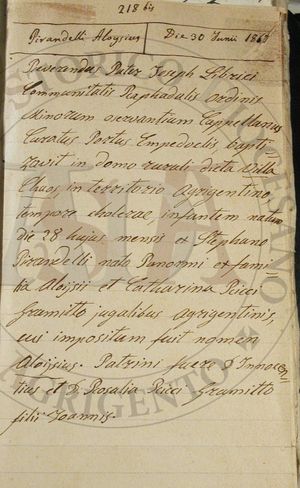 218 bis
Pirandelli Aloysius
Die 30 Junii 1867
Reverendus Pater Joseph Librici
Communitatis Raphadalis ordinis
Minorum osservantium Cappellanus
Curatus Portus Empedoclis bapti-
zavit in domo rurali dicta Villa
Chaos in territorio agrigentino
tempore cholerae infantem natum
die 28 hujus mensis ex Stephano
Pirandelli nato Panormi ex fami-
lia Aloisii et Catharina Ricci
Gramitto jugalibus agrigentinis,
cui impositum fuit nomen
Aloisius. Patrini fuere D. Innocen-
tius et D. Rosalia Ricci Gramitto
filii Joannis.
ARCHIVIO STORICO DIOCESANO
AGRIGENTO